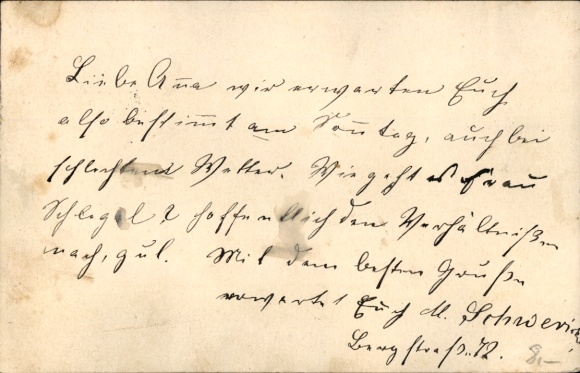 Liebe Anna wir erwarten Euch
also bestimmt am Sonntag, auch bei
schlechtem Wetter. Wie geht es Frau
Schlegel? hoffentlich den Verhältnißen
nach, gut. Mit dem besten Gruße
erwartet Euch M. Schwerin
Bergstraß. 72. 8.–